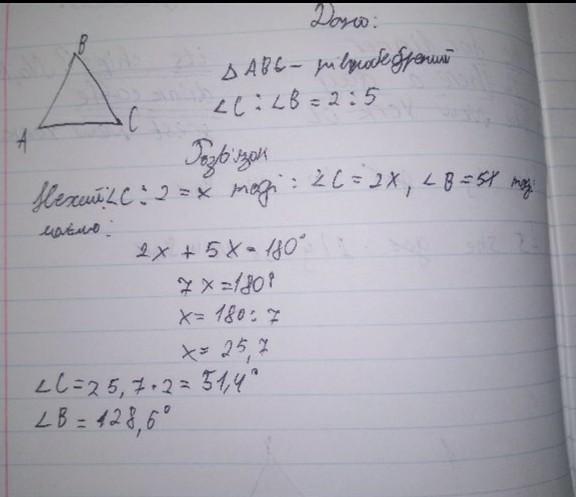 Дано:
B
△ABC – рівнобедрений
∠C : ∠B = 2 : 5
A
C
Розв'язок
Нехай ∠C : 2 = x тоді : ∠C = 2x, ∠B = 5x тоді
маємо:
2x + 5x = 180°
7x = 180°
x = 180 : 7
x = 25,7
∠C = 25,7 · 2 = 51,4°
∠B = 128,6°